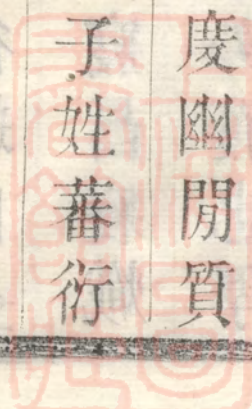 慶幽閒質
子姓蕃衍